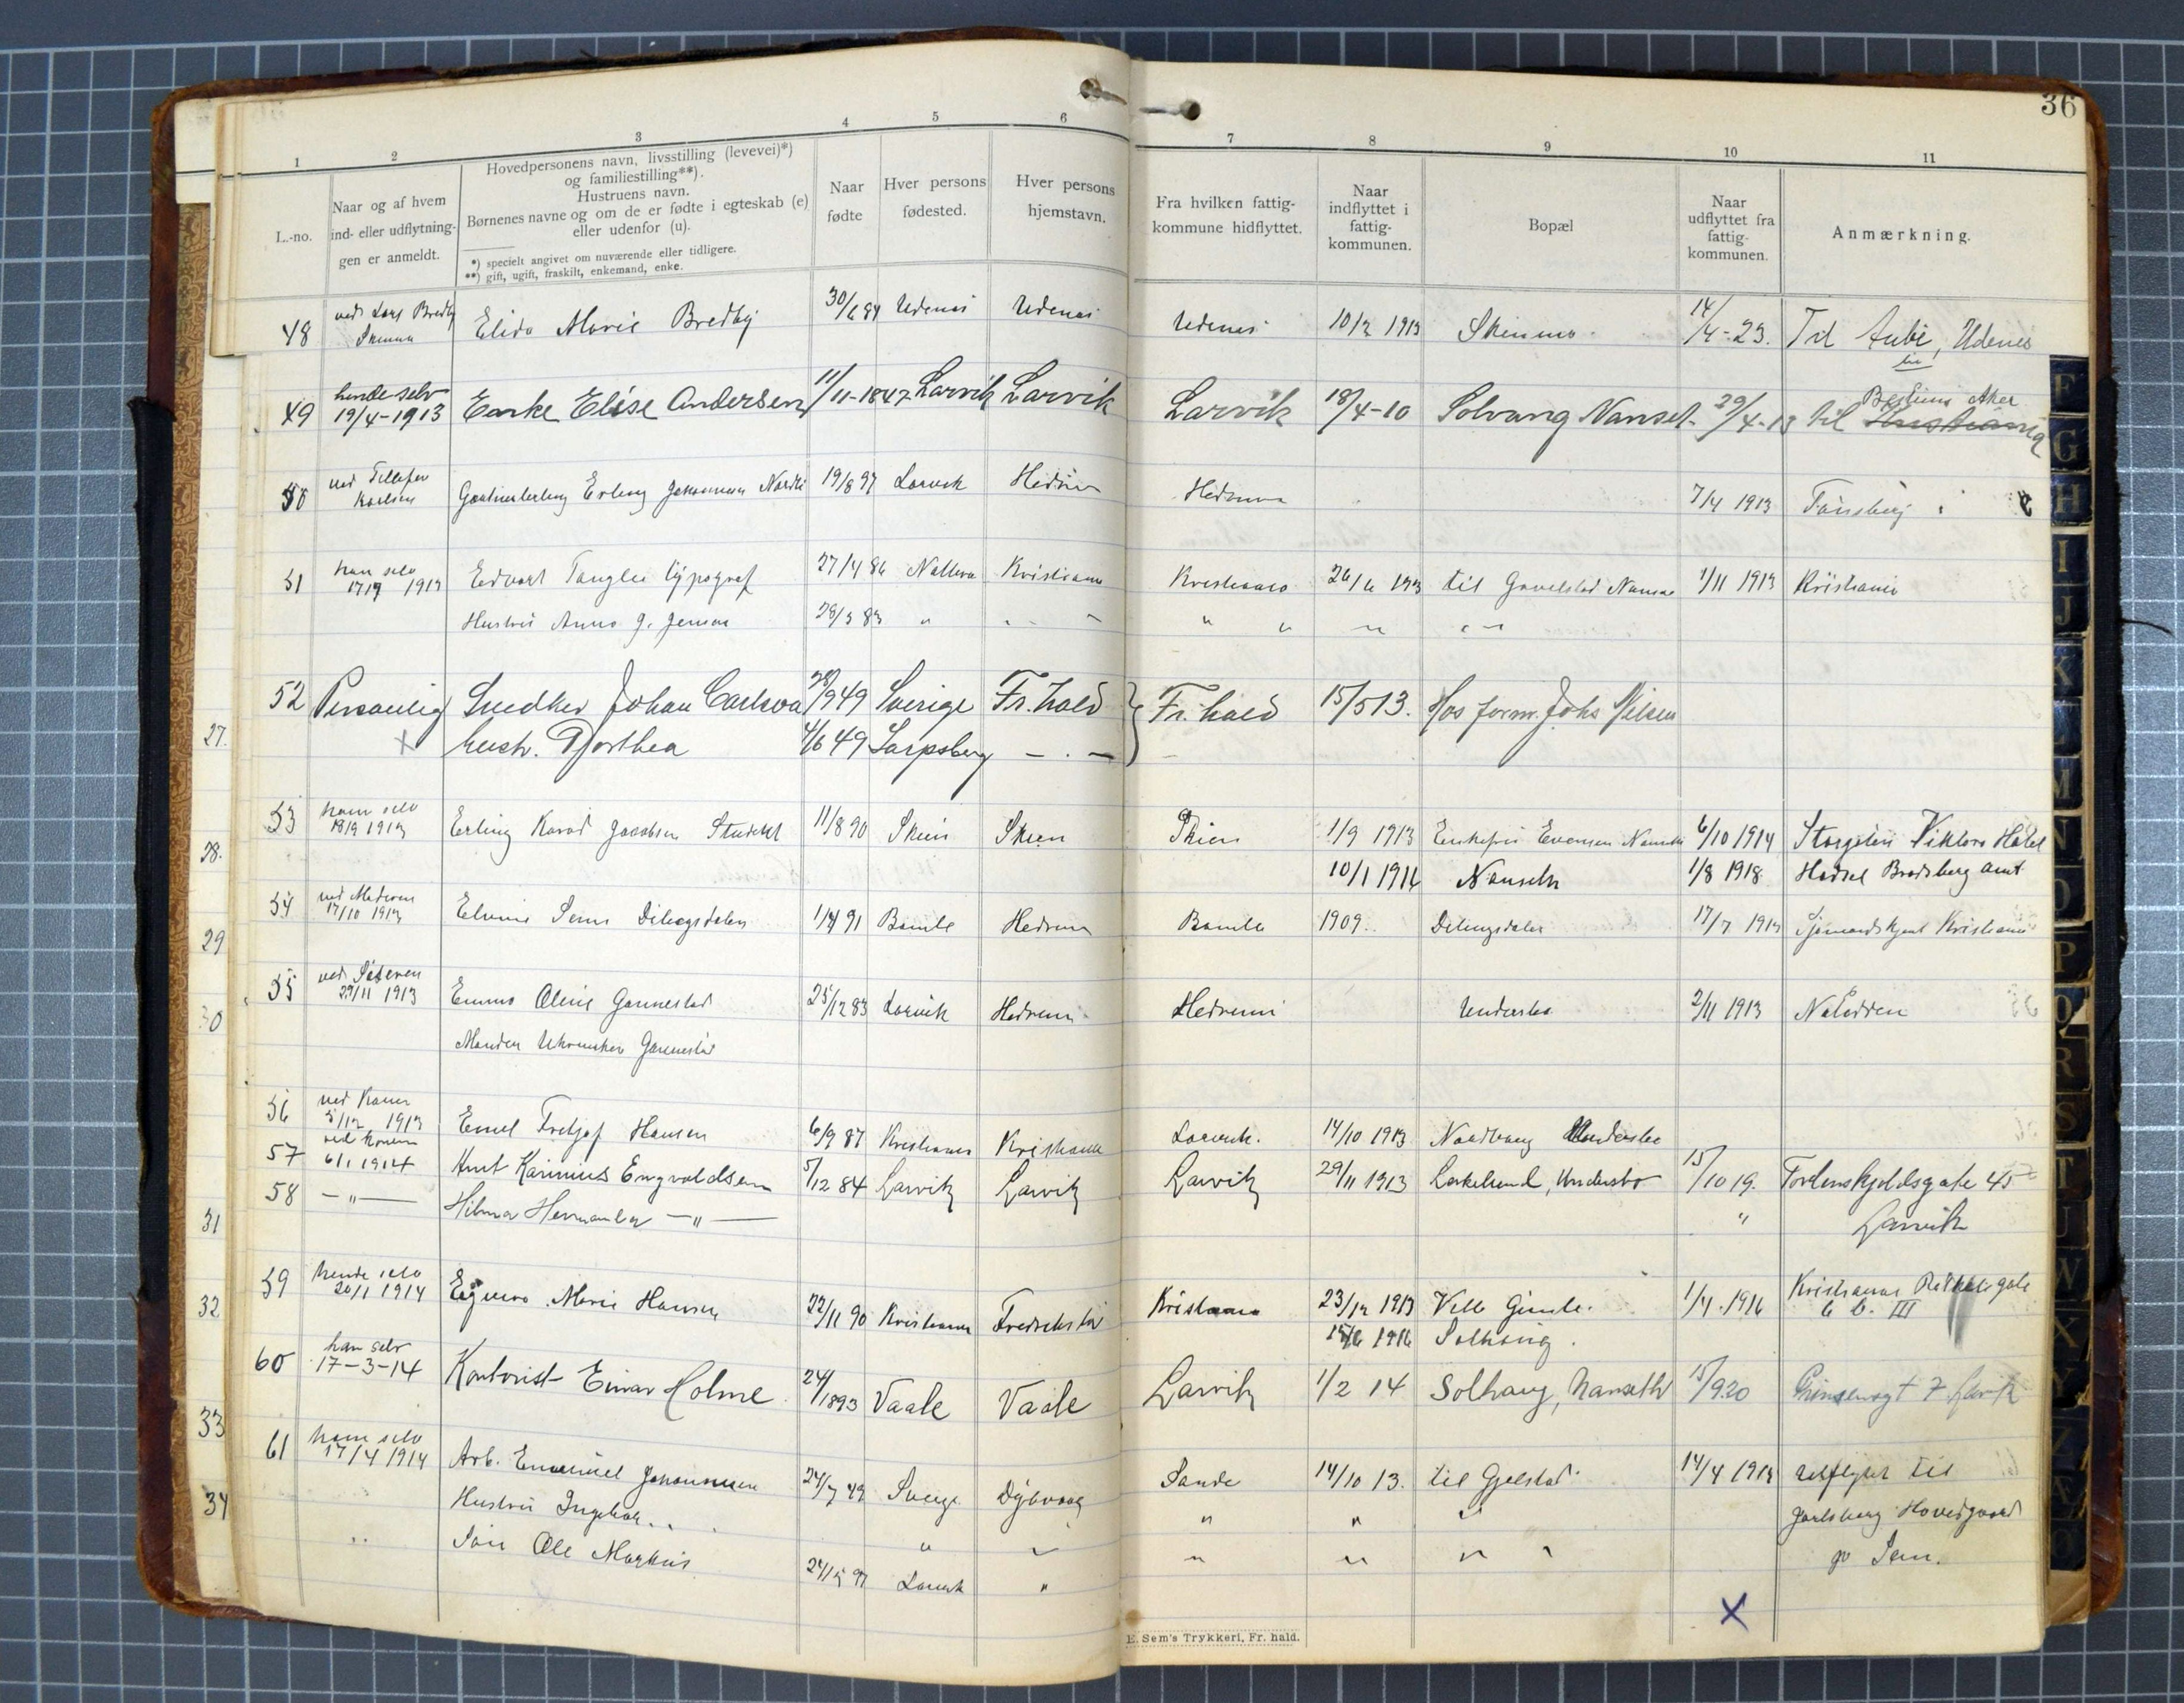 36
1 2 3 4 5 6 7 8 9 10 11
L.-no.
Naar og af hvem
ind- eller udflytnin-
gen er anmeldt.
Hovedpersonens navn, livsstilling (levevei)*)
og familiestilling**).
Hustruens navn.
Børnenes navne og om de er fødte i egteskab (e)
eller udenfor (u).
*) specielt angivet om nuværende eller tidligere.
**) gift, ugift, fraskilt, enkemand, enke.
Naar
fødte
Hver persons
fødested.
Hver persons
hjemstavn.
Fra hvilken fattig-
kommune hidflyttet.
Naar
indflyttet i
fattig-
kommunen.
Bopæl
Naar
udflyttet fra
fattig-
kommunen.
Anmærkning.
ved Lars Bredby
48 Elida Marie Bredby 30/6 84 Udenes Udenes Udenes 10/2 1913 Skinmo 14/4-23. Til Aubi, Udenes
hende selv Bestum Aker
49 19/4-1913 Enke Elise Andersen 11/11-1847 Larvik Larvik Larvik 18/4-10 Solvang Nanset 29/4-13 til Kristiania
ved Tellefsen
50 Karlsen Erling Johannesen 19/8 97 Larvik Hedrum Hedrum 7/4 1913 Tønsberg
han selv
51 17/9 1913 Edvart Tanglei typograf 27/4 86 Kristiania Kristiania 26/6 1913 til Gavelstad Nanset 1/11 1913 Kristiania
Hustru Anna J. Jensen 28/3 83 " " " "
52 Personlig Snedker Johan Carlson 28/9 49 Sverige Fr.hald Fr. hald 15/5 13. Hos form. Johs Nilsen
27. x hustr. Dorthea 4/6 49 Sarpsborg — . —
ham selv
53 18/9 1913 Erling Karad Jacobsen Student 11/8 90 Skien Skien Skien 1/9 1913 Enkefru Evensen Nanset 6/10 1914 Storgaten Viktoria Hotel
28. 10/1 1916 Nanseth 1/8 1918 Bradsberg amt
ved Moderen
54 17/10 1913 1/4 91 Bamle Hedrum Bamle 1909. 17/7 1913 Kristiania
29
ved Søsteren
55 29/11 1913 Emma Oline Gannestad 25/12 83 Larvik Hedrum Hedrum Undersbo 2/11 1913 Notodden
30
Manden Gannestad
ved Konen
56 5/12 1913 Emil Fritjof Hansen 6/9 87 Kristiania Kristiania Larvik. 14/10 1913 Undersbo
ved konen
57 6/1 1914 Knut Karinius Engvoldsen 5/12 84 Larvik Larvik Larvik 29/11 1913 Lerkelund, Undersbo 15/10 19. Tordenskjoldsgate 45
58 — " — Hilma Hermanda — " — " Larvik
31
hende selv
59 20/1 1914 Marie Hansen 22/11 90 Kristiania Fredrikstad Kristiania 23/12 1913 Villa Gimle. 1/4. 1916 Kristiania
32 6 b. III
15/6 1916 Solhaug.
han selv
60 17-3-14 Kontorist Einar Holme 24/1893 Vaale Vaale Larvik 1/2 14 Solhaug, Nanseth 15/9 20 Prinsensgt 7. Larvik
33
ham selv
61 17/4 1914 Arb. Emanuel Johannesen 24/7 49 Sverige Dybvaag Sande 14/10 13. til Gjelstad 14/4 1914 utflyttet til
34 Hustru Ingebor " " " Jarlsberg Hovedgaard
Søn Ole Markus 24/5 97 Larvik " " " " " pr Sem.
x
E. Sem's Trykkeri, Fr. hald.
F
G
H
I
J
K
L
M
N
O
P
Q
R
S
T
U
W
X
Y
Z
Æ
Ø